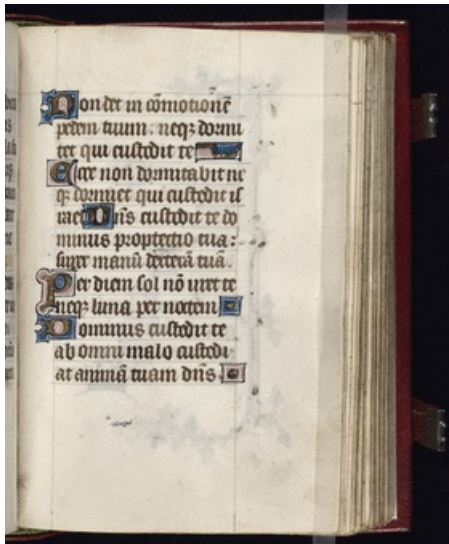 Non det in cõmotionẽ
pedem tuum: neqꝫ dormi
tet qui custodit te
Ecce non dormitabit ne
qꝫ dormiet qui custodit is
rael Dñs custodit te do
minus proptectio tua:
super manũ dexterã tuã
Per diem sol nõ uret te
neqꝫ luna per noctem
Dominus custodit te
ab omni malo custodi
at animã tuam dñs